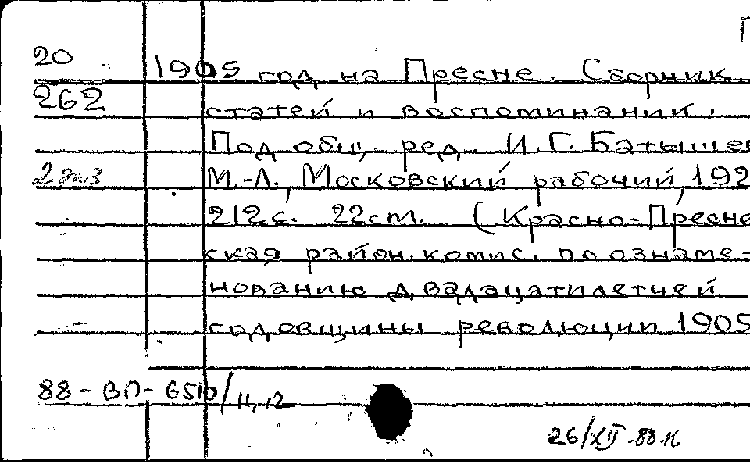 20 1905 год на Пресне. Сборник
262 статей и воспоминаний.
Под общ. ред. И.Г. Батыше
2 экз М.-Л., Московский рабочий, 192
212 с. 22 см. (Красно-Пресне
ская район. комис. по ознаме-
нованию двадцатилетней
годовщины революции 1905
88-ВП-6510/11,12
26/XII-88 н